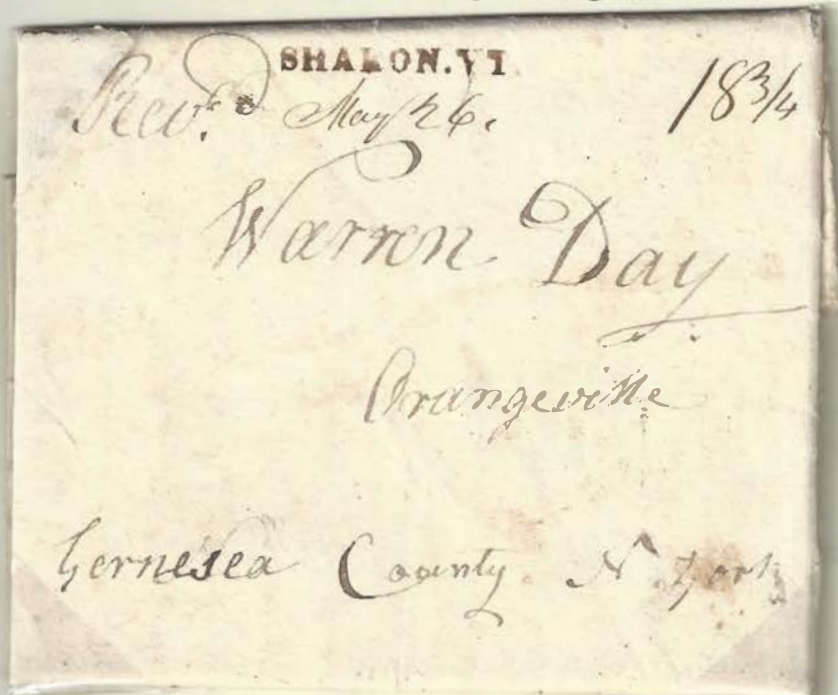 SHARON.VT
Revd. May 26. 18 3/4
Warren Day
Orangeville
Gernesea County N York